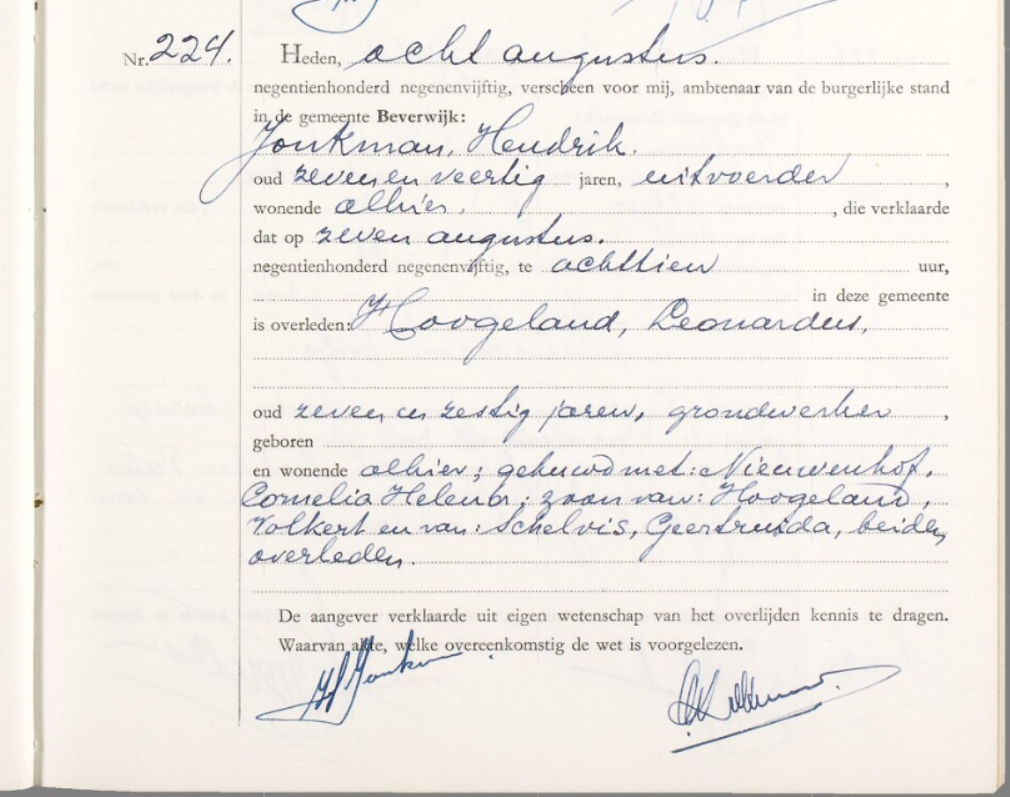 Nr. 224. Heden, acht augustus.
negentienhonderd negenenvijftig, verscheen voor mij, ambtenaar van de burgerlijke stand
in de gemeente Beverwijk:
Jonkman, Hendrik.
oud zeven en veertig jaren, uitvoerder ,
wonende alhier, , die verklaarde
dat op zeven augustus.
negentienhonderd negenenvijftig, te achttien uur,
in deze gemeente
is overleden: Hoogeland, Leonardus,
oud zeven en zestig jaren, grondwerker ,
geboren
en wonende alhier; gehuwd met: Nieuwenhof,
Cornelia Helena; zoon van: Hoogeland,
Volkert en van: Schelvis, Geertruida, beiden
overleden.
De aangever verklaarde uit eigen wetenschap van het overlijden kennis te dragen.
Waarvan akte, welke overeenkomstig de wet is voorgelezen.
H Jonkman